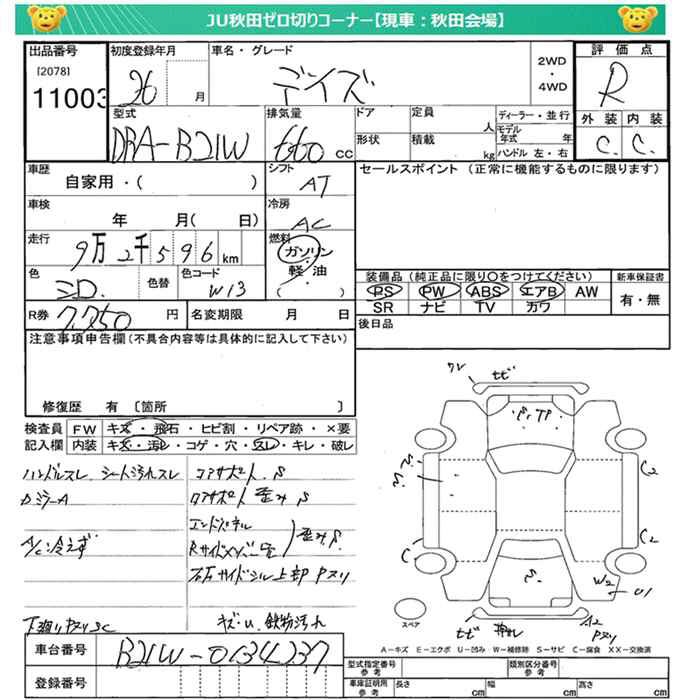 JU秋田ゼロ切りコーナー【現車：秋田会場】
出品番号
[2078]
11003
初度登録年月
26 月
車名・グレード
デイズ
2WD
・
4WD
評価点
R
外装 内装
C C
型式
DBA-B21W
排気量
660 cc
ドア
形状
定員
人
積載
kg
ディーラー・並行
モデル年式 年
ハンドル 左・右
車歴
自家用・（ ）
シフト
AT
セールスポイント（正常に機能するものに限ります）
車検
年 月（ 日）
冷房
AC
走行
9万2千596km
燃料
ガソリン
・
軽・油
（ ）
色
ミロ.
色替
色コード
W13
装備品（純正品に限り○をつけてください）
PS PW ABS エアB AW
SR ナビ TV カワ
新車保証書
有・無
R券
7,750 円
名変期限 月 日
後日品
注意事項申告欄（不具合内容等は具体的に記入して下さい）
修復歴 有〔箇所 〕
検査員記入欄
FW キズ・飛石・ヒビ割・リペア跡・×要
内装 キズ・汚レ・コゲ・穴・スレ・キレ・破レ
ハンドルスレ、シート汚れスレ
コアサポート、S
カジラーA
コアサポート 歪み S
A/C冷えず
エンドパネル
歪み、S.
石サイドシル上部 Pスリ
下廻りヤスリSC
キズ・U、鉄粉汚れ
車台番号
B21W-0134237
登録番号
ワレ
セビ
C3
C
C2
W2
U1
セビ
A2
スペア
A－キズ E－エクボ U－凹み W－補修跡 S－サビ C－腐食 XX－交換済
型式指定番号
参考
類別区分番号
参考
車庫証明用
参考
長さ cm
幅 cm
高さ cm